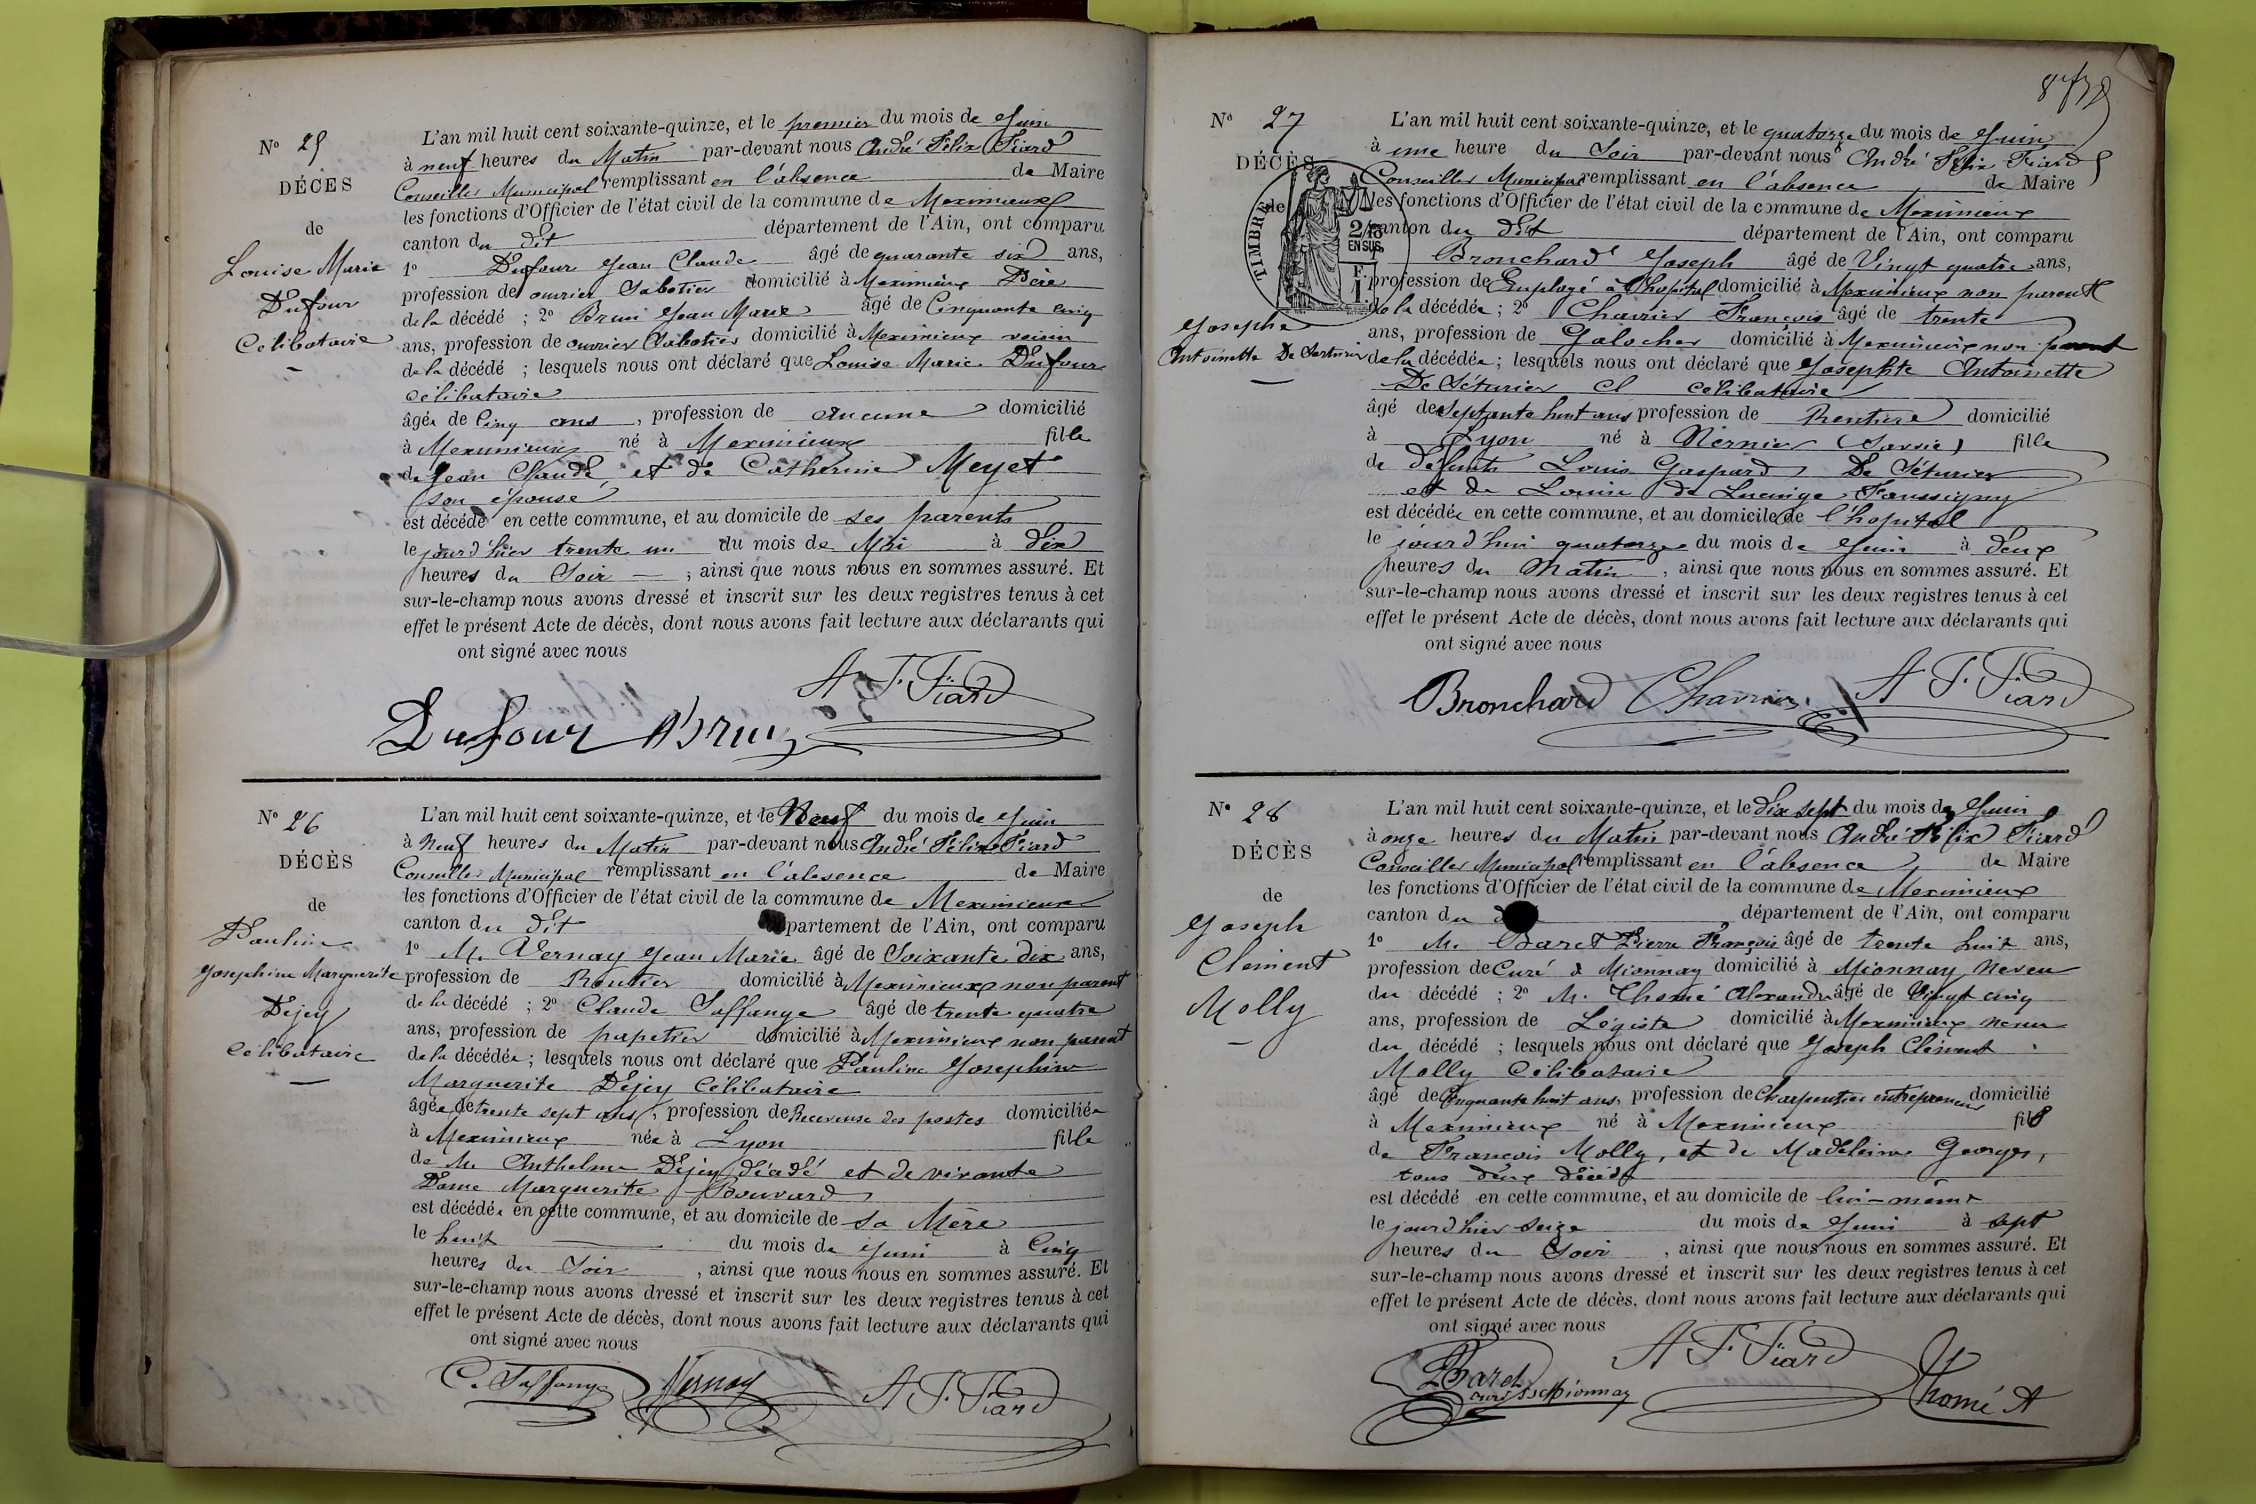 Nº 25
DÉCÈS
de
Louise Marie
Dufour
Célibataire
L'an mil huit cent soixante-quinze, et le premier du mois de Juin
à neuf heures du Matin par-devant nous André Félix Fiard
Conseiller Municipal remplissant en l'absence de Maire
les fonctions d'Officier de l'état civil de la commune de Meximieux
canton du dit département de l'Ain, ont comparu
1º Dufour Jean Claude âgé de quarante six ans,
profession de ouvrier Sabotier domicilié à Meximieux Père
de la décédé ; 2º Brun Jean Marie âgé de Cinquante cinq
ans, profession de ouvrier Sabotier domicilié à Meximieux voisin
de la décédé ; lesquels nous ont déclaré que Louise Marie Dufour
célibataire
âgée de Cinq ans, profession de aucune domicilié
à Meximieux né à Meximieux fille
de Jean Claude et de Catherine Meyet
son épouse
est décédé en cette commune, et au domicile de ses parents
le jourd'hier trente un du mois de Mai à dix
heures du Soir ; ainsi que nous nous en sommes assuré. Et
sur-le-champ nous avons dressé et inscrit sur les deux registres tenus à cet
effet le présent Acte de décès, dont nous avons fait lecture aux déclarants qui
ont signé avec nous
A F. Fiard
Dufour Brun
Nº 26
DÉCÈS
de
Pauline
Josephine Marguerite
Dejey
Célibataire
L'an mil huit cent soixante-quinze, et le Neuf du mois de Juin
à Neuf heures du Matin par-devant nous André Félix Fiard
Conseiller Municipal remplissant en l'absence de Maire
les fonctions d'Officier de l'état civil de la commune de Meximieux
canton du dit partement de l'Ain, ont comparu
1º M. Vernay Jean Marie âgé de Soixante dix ans,
profession de Rentier domicilié à Meximieux non parent
de la décédé ; 2º Claude Saffange âgé de trente quatre
ans, profession de papetier domicilié à Meximieux non parent
de la décédée ; lesquels nous ont déclaré que Pauline Josephine
Marguerite Dejey Célibataire
âgée de trente sept ans, profession de Receveuse des postes domiciliée
à Meximieux née à Lyon fille
de M. Anthelme Dejey décédé et de vivante
Dame Marguerite Bouvard
est décédée en cette commune, et au domicile de sa Mère
le huit du mois de Juin à Cinq
heures du Soir, ainsi que nous nous en sommes assuré. Et
sur-le-champ nous avons dressé et inscrit sur les deux registres tenus à cet
effet le présent Acte de décès, dont nous avons fait lecture aux déclarants qui
ont signé avec nous
C. Saffange Vernay A. F. Fiard
Nº 27
DÉCÈS
de
TIMBRE
2/10
EN SUS
Josephe
Antoinette De
L'an mil huit cent soixante-quinze, et le quatorze du mois de Juin
à une heure du Soir par-devant nous André Félix Fiard
Conseiller Municipal remplissant en l'absence de Maire
les fonctions d'Officier de l'état civil de la commune de Meximieux
canton du dit département de l'Ain, ont comparu
Bronchard Joseph âgé de Vingt quatre ans,
profession de Employé à l'hopital domicilié à Meximieux non parent
de la décédée ; 2º Charrier François âgé de trente
ans, profession de Galocher domicilié à Meximieux non parent
de la décédée ; lesquels nous ont déclaré que Josephte Antoinette
De Séturier célibataire
âgé de septante huit ans profession de Rentière domicilié
à Lyon né à Nernier (Savoie) fille
de défunts Louis Gaspard De Séturier
et de Louise de Lucinge Faussigny
est décédée en cette commune, et au domicile de l'hopital
le jourd'hui quatorze du mois de Juin à deux
heures du Matin, ainsi que nous nous en sommes assuré. Et
sur-le-champ nous avons dressé et inscrit sur les deux registres tenus à cet
effet le présent Acte de décès, dont nous avons fait lecture aux déclarants qui
ont signé avec nous
Bronchard Charrier A F. Fiard
Nº 28
DÉCÈS
de
Joseph
Clément
Molly
L'an mil huit cent soixante-quinze, et le dix sept du mois de Juin
à onze heures du Matin par-devant nous André Félix Fiard
Conseiller Municipal remplissant en l'absence de Maire
les fonctions d'Officier de l'état civil de la commune de Meximieux
canton du d département de l'Ain, ont comparu
1º M. Baret Pierre François âgé de trente huit ans,
profession de Curé à Mionnay domicilié à Mionnay Neveu
du décédé ; 2º M. Thomé Alexandre âgé de Vingt cinq
ans, profession de Légiste domicilié à Meximieux neveu
du décédé ; lesquels nous ont déclaré que Joseph Clément
Molly Célibataire
âgé de Cinquante huit ans, profession de Charpentier entrepreneur domicilié
à Meximieux né à Meximieux fils
de François Molly, et de Madeleine Georges,
tous deux décédés
est décédé en cette commune, et au domicile de lui-même
le jourd'hier seize du mois de Juin à sept
heures du Soir, ainsi que nous nous en sommes assuré. Et
sur-le-champ nous avons dressé et inscrit sur les deux registres tenus à cet
effet le présent Acte de décès, dont nous avons fait lecture aux déclarants qui
ont signé avec nous
Baret A F. Fiard Thomé A
curé de Mionnay